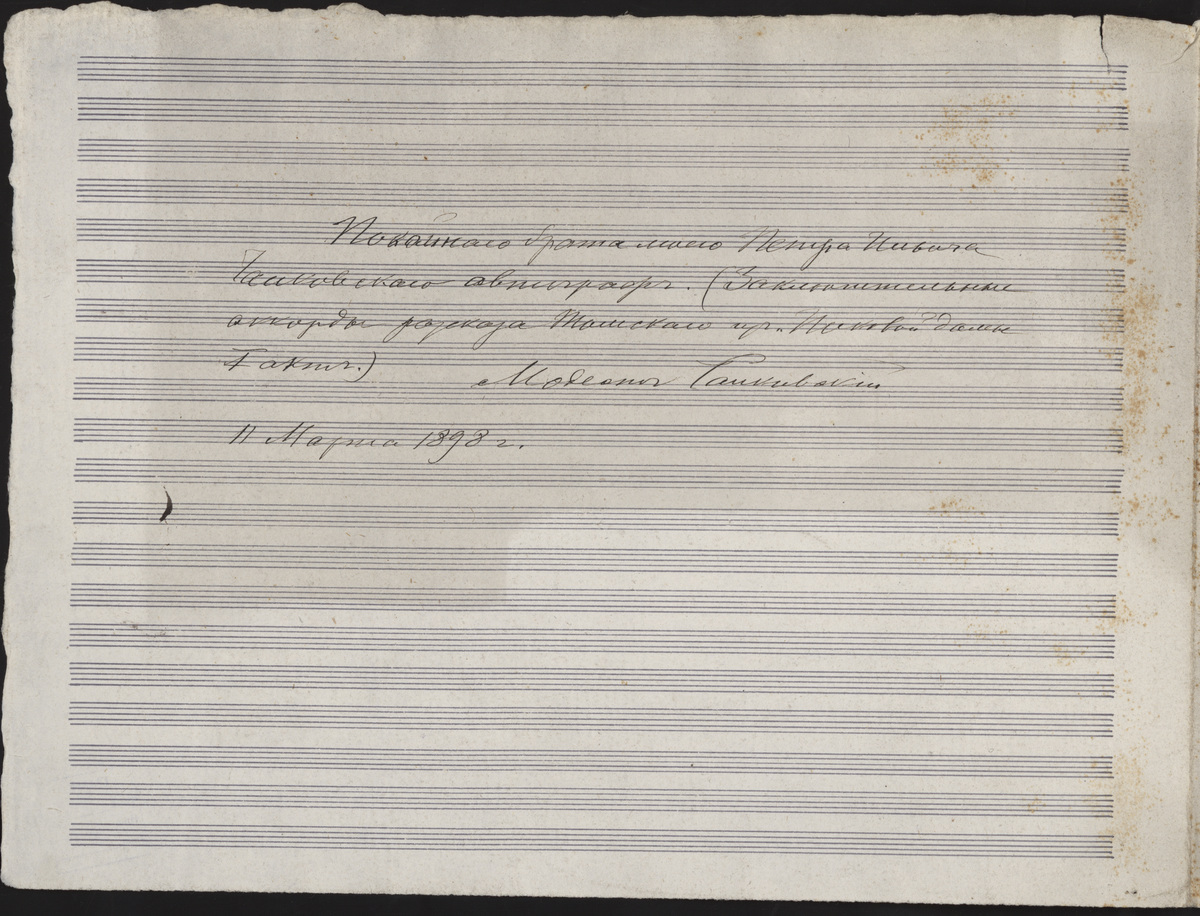 Покойнаго брата моего Петра Ильича
Чайковскаго автографъ. (Заключительные
аккорды разсказа Томскаго изъ „Пиковой дамы
1 актъ.)
Модестъ Чайковскій
11 Марта 1898 г.